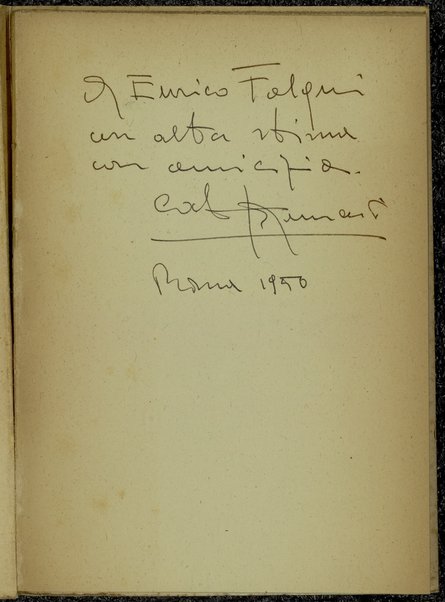 A Enrico Falqui
con alta stima
con amicizia.
Roma 1950